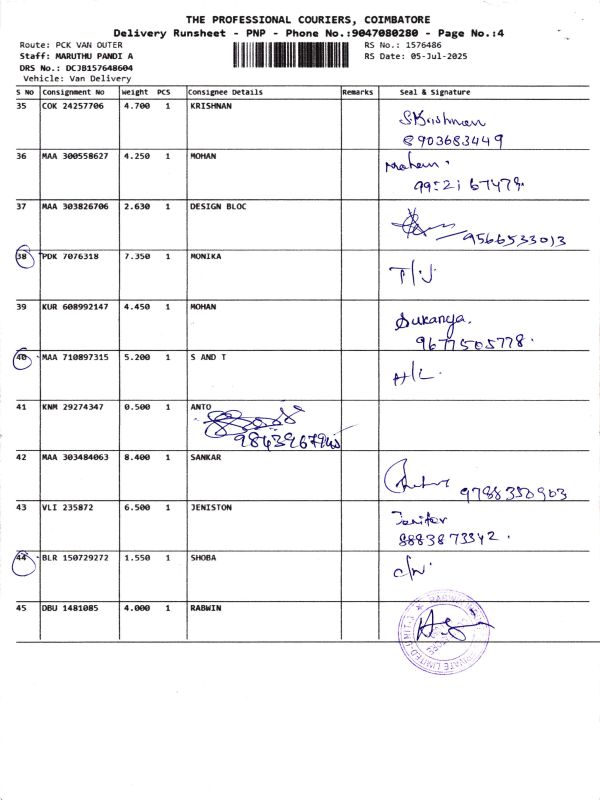 THE PROFESSIONAL COURIERS, COIMBATORE
Delivery Runsheet - PNP - Phone No.:9047080280 - Page No.:4
Route: PCK VAN OUTER
RS No.: 1576486
Staff: MARUTHU PANDI A
RS Date: 05-Jul-2025
DRS No.: DCJB157648604
Vehicle: Van Delivery
S No Consignment No Weight PCS Consignee Details Remarks Seal & Signature
35 COK 24257706 4.700 1 KRISHNAN
S.Krishnan
8903683449
36 MAA 300558627 4.250 1 MOHAN
Mohan.
37 MAA 303826706 2.630 1 DESIGN BLOC
9566533013
38 PDK 7076318 7.350 1 MONIKA
T/J
39 KUR 608992147 4.450 1 MOHAN
Sukanya.
9677505778.
40 MAA 710897315 5.200 1 S AND T
H/L
41 KNM 29274347 0.500 1 ANTO
42 MAA 303484063 8.400 1 SANKAR
9788350903
43 VLI 235872 6.500 1 JENISTON
Jenifer
8883873342.
44 BLR 150729272 1.550 1 SHOBA
C/N.
45 DBU 1481085 4.000 1 RABWIN
PRIVATE LIMITED-UNIT-1